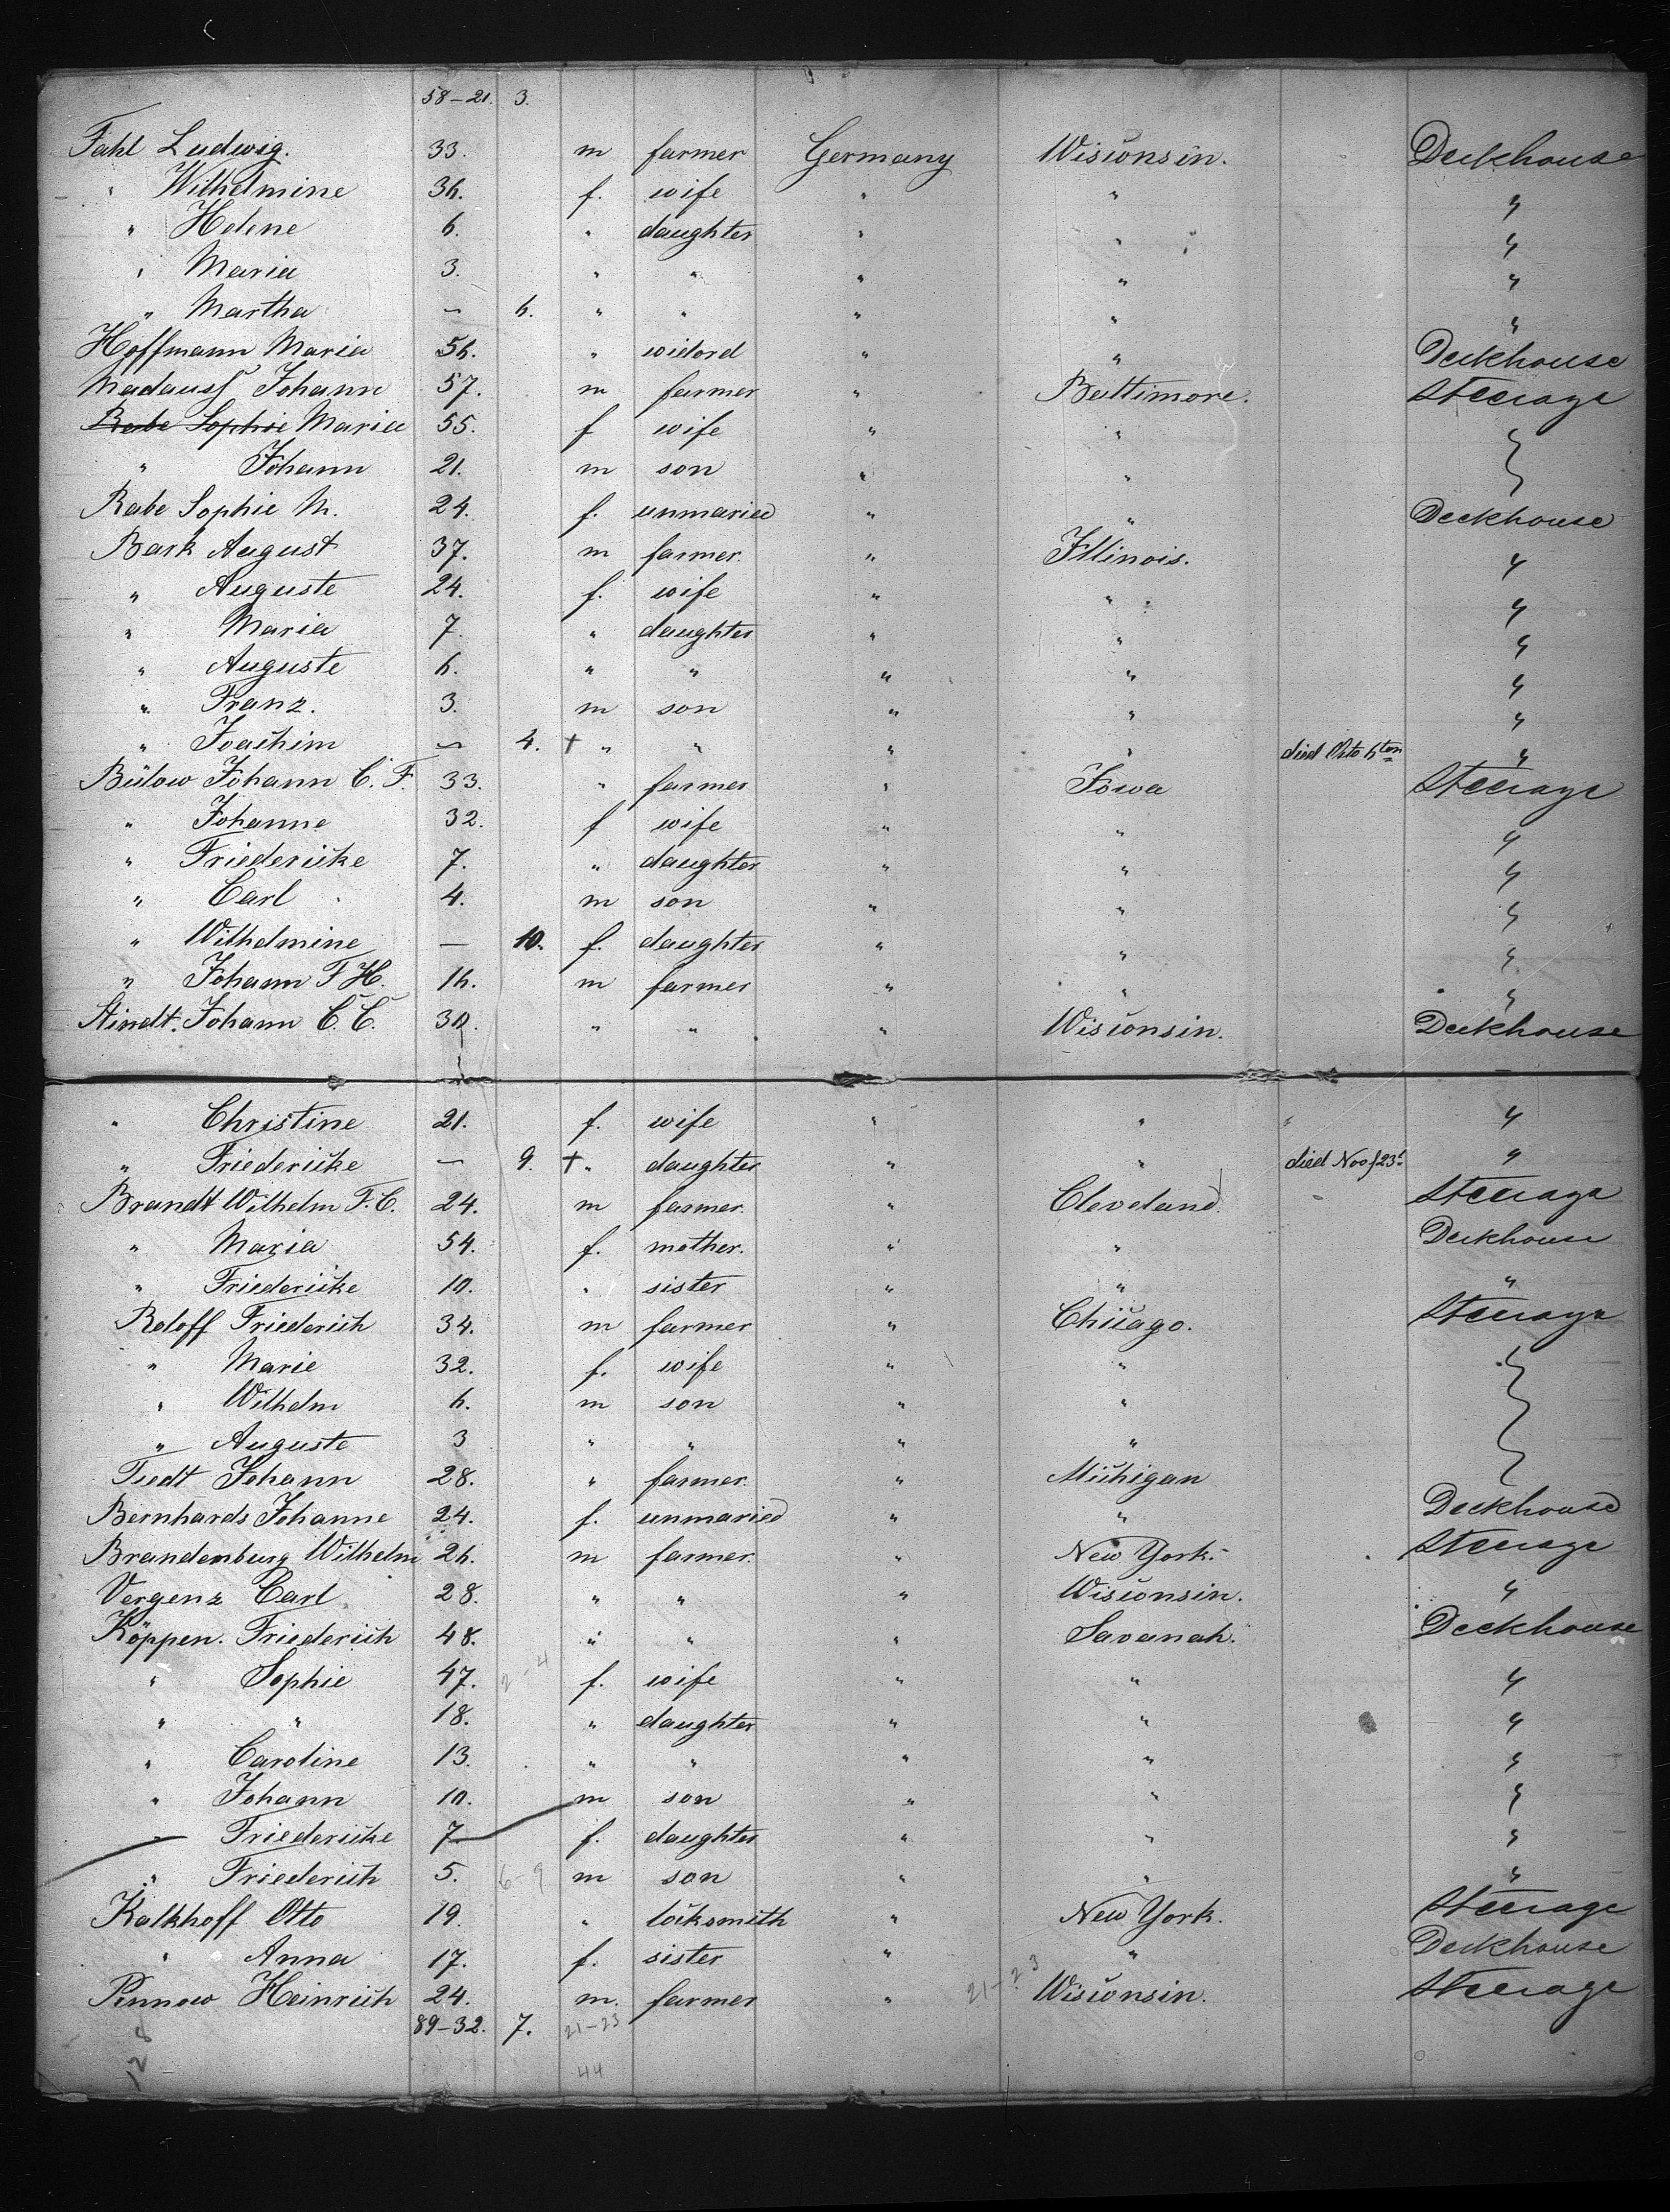 58-21. 3.
Fahl Ludwig. 33. m farmer Germany Wisconsin. Deckhouse
" Wilhelmine 36. f. wife " " "
" Helene 6. " daughter " " "
" Maria 3. " " " " "
" Martha - 6. " " " " "
Hoffmann Maria 56. " widord " " Deckhouse
Madauss Johann 57. m farmer " Baltimore. Steerage
Rabe Sophie Maria 55. f wife " "
" Johann 21. m son " "
Rabe Sophie M. 24. f. unmaried " " Deckhouse
Bark August 37. m farmer " Illinois. "
" Auguste 24. f. wife " " "
" Maria 7. " daughter " " "
" Auguste 6. " " " " "
" Franz. 3. m son " " "
" Joachim - 4. + " " " " died Octo 6ten "
Bülow Johann C. F. 33. " farmer " Iowa Steerage
" Johanne 32. f wife " " "
" Friedericke 7. " daughter " " "
" Carl 4. m son " " "
" Wilhelmine - 10. f. daughter " " "
" Johann F H. 16. m farmer " " "
Stindt. Johann C. C. 30. " " " Wisconsin. Deckhouse
" Christine 21. f. wife " " " "
" Friedericke - 9. + " daughter " " died Nov 23d "
Brandt Wilhelm F. C. 24. m farmer. " Cleveland. Steerage
" Maria 54. f. mother. " " Deckhouse
" Friedericke 10. " sister " " "
Roloff Friederich 34. m farmer " Chicago. Steerage
" Marie 32. f. wife " "
" Wilhelm 6. m son " "
" Auguste 3 " " " "
Tiedt Johann 28. " farmer. " Michigan
Bernhards Johanne 24. f. unmaried " " Deckhouse
Brandenburg Wilhelm 26. m farmer. " New York. Steerage
Vergenz Carl 28. " " " Wisconsin. "
Köppen. Friederich 48. " " " Savanah. Deckhouse
" Sophie 47. 2-4 f. wife " " "
" " 18. " daughter " " "
" Caroline 13. " " " " "
" Johann 10. m son " " "
" Friedericke 7 f. daughter " " "
" Friederich 5. 6-9 m son " " "
Kalkhoff Otto 19. " locksmith " New York. Steerage
" Anna 17. f. sister " " Deckhouse
Pinnow Heinrich 24. m. farmer " 21-23 Wisconsin. Steerage
89-32. 7. 21-23
128
44